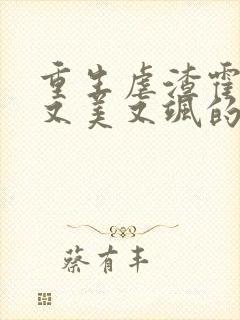 重生虐渣霍
又美又飒的
蔡有丰